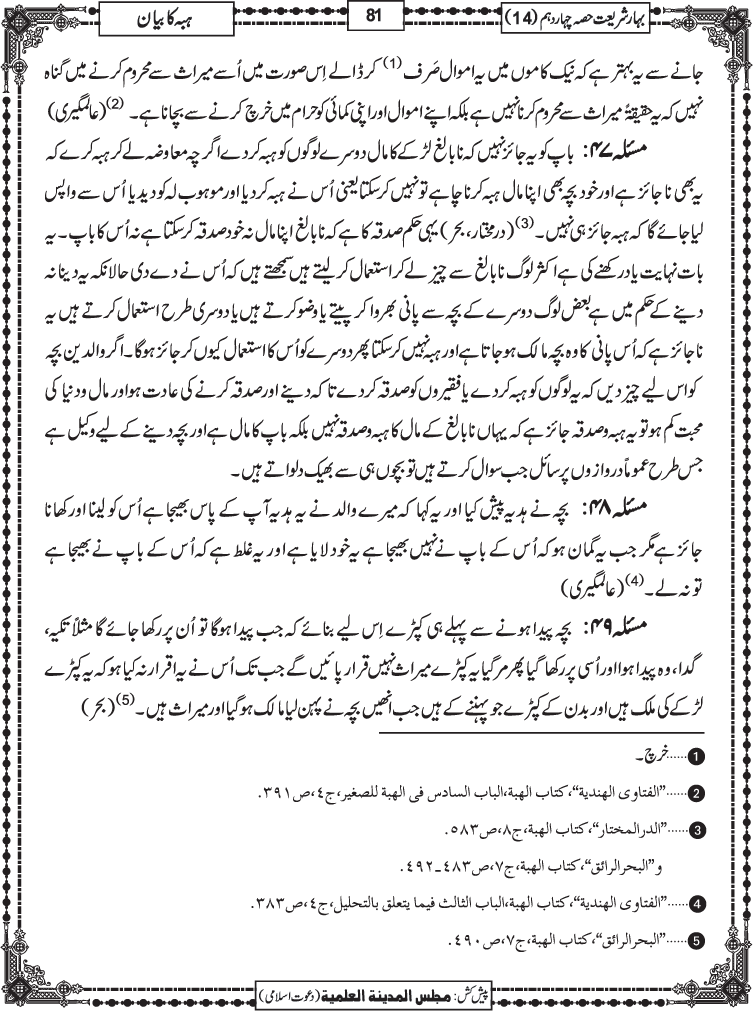 بہار شریعت حصہ چہاردہم (14)
81
ہبہ کا بیان
جانے سے یہ بہتر ہے کہ نیک کاموں میں یہ اموال صَرف (1) کر ڈالے اِس صورت میں اُسے میراث سے محروم کرنے میں گناہ
نہیں کہ یہ حقیقۃً میراث سے محروم کرنا نہیں ہے بلکہ اپنے اموال اور اپنی کمائی کو حرام میں خرچ کرنے سے بچانا ہے۔ (2) (عالمگیری)
مسئلہ ۴۷: باپ کو یہ جائز نہیں کہ نابالغ لڑکے کا مال دوسرے لوگوں کو ہبہ کردے اگرچہ معاوضہ لے کر ہبہ کرے کہ
یہ بھی ناجائز ہے اور خود بچہ بھی اپنا مال ہبہ کرنا چاہے تو نہیں کرسکتا یعنی اُس نے ہبہ کردیا اور موہوب لہ کو دیدیا اُس سے واپس
لیا جائے گا کہ ہبہ جائز ہی نہیں۔ (3) (درمختار، بحر) یہی حکم صدقہ کا ہے کہ نابالغ اپنا مال نہ خود صدقہ کرسکتا ہے نہ اُس کا باپ۔ یہ
بات نہایت یاد رکھنے کی ہے اکثر لوگ نابالغ سے چیز لے کر استعمال کرلیتے ہیں سمجھتے ہیں کہ اُس نے دے دی حالانکہ یہ دینا نہ
دینے کے حکم میں ہے بعض لوگ دوسرے کے بچہ سے پانی بھروا کر پیتے یا وضو کرتے ہیں یا دوسری طرح استعمال کرتے ہیں یہ
ناجائز ہے کہ اُس پانی کا وہ بچہ مالک ہوجاتا ہے اور ہبہ نہیں کرسکتا پھر دوسرے کو اُس کا استعمال کیوں کر جائز ہوگا۔ اگر والدین بچہ
کو اس لیے چیز دیں کہ یہ لوگوں کو ہبہ کردے یا فقیروں کو صدقہ کردے تاکہ دینے اور صدقہ کرنے کی عادت ہو اور مال و دنیا کی
محبت کم ہو تو یہ ہبہ و صدقہ جائز ہے کہ یہاں نابالغ کے مال کا ہبہ و صدقہ نہیں بلکہ باپ کا مال ہے اور بچہ دینے کے لیے وکیل ہے
جس طرح عموماً دروازوں پر سائل جب سوال کرتے ہیں تو بچوں ہی سے بھیک دلواتے ہیں۔
مسئلہ ۴۸: بچہ نے ہدیہ پیش کیا اور یہ کہا کہ میرے والد نے یہ ہدیہ آپ کے پاس بھیجا ہے اُس کو لینا اور کھانا
جائز ہے مگر جب یہ گمان ہو کہ اُس کے باپ نے نہیں بھیجا ہے یہ خود لایا ہے اور یہ غلط ہے کہ اُس کے باپ نے بھیجا ہے
تو نہ لے۔ (4) (عالمگیری)
مسئلہ ۴۹: بچہ پیدا ہونے سے پہلے ہی کپڑے اِس لیے بنائے کہ جب پیدا ہوگا تو اُن پر رکھا جائے گا مثلاً تکیہ،
گدا، وہ پیدا ہوا اور اُسی پر رکھا گیا پھر مرگیا یہ کپڑے میراث نہیں قرار پائیں گے جب تک اُس نے یہ اقرار نہ کیا ہو کہ یہ کپڑے
لڑکے کی ملک ہیں اور بدن کے کپڑے جو پہننے کے ہیں جب انھیں بچہ نے پہن لیا مالک ہوگیا اور میراث ہیں۔ (5) (بحر)
1 ...... خرچ۔
2 ...... ”الفتاوی الهندیة“، کتاب الهبة، الباب السادس فی الهبة للصغیر، ج٤، ص۳۹۱.
3 ...... ”الدرالمختار“، کتاب الهبة، ج۸، ص۵۸۳.
و ”البحرالرائق“، کتاب الهبة، ج۷، ص٤۸۳ـ٤۹۲.
4 ...... ”الفتاوی الهندیة“، کتاب الهبة، الباب الثالث فیما یتعلق بالتحلیل، ج٤، ص۳۸۳.
5 ...... ”البحرالرائق“، کتاب الهبة، ج۷، ص٤۹۰.
پیش کش: مجلس المدینة العلمیة (دعوت اسلامی)